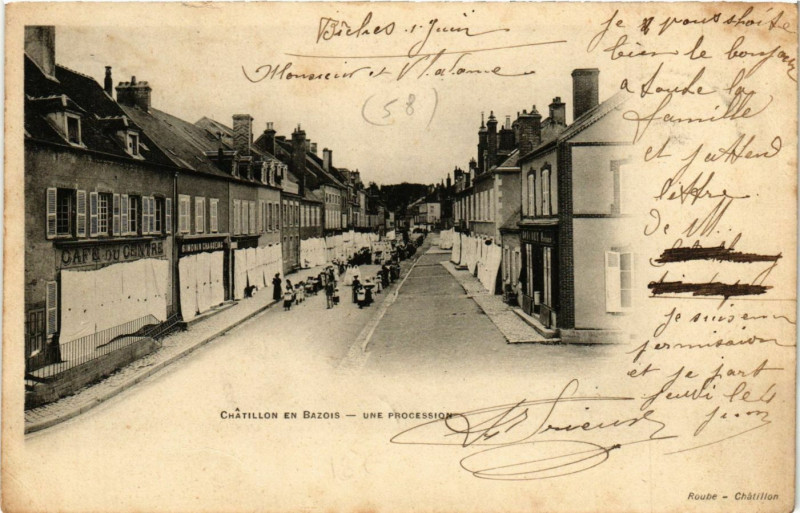 Biches 1 Juin
Monsieur et Madame
(58)
Je vous shoite
bien le bonjour
a toute la
famille
et j'attend
lettre
De M.
je suis en
permission
et je part
jeudi le 4
juin
CAFÉ DU CENTRE
CHÂTILLON EN BAZOIS — UNE PROCESSION
Roube - Châtillon